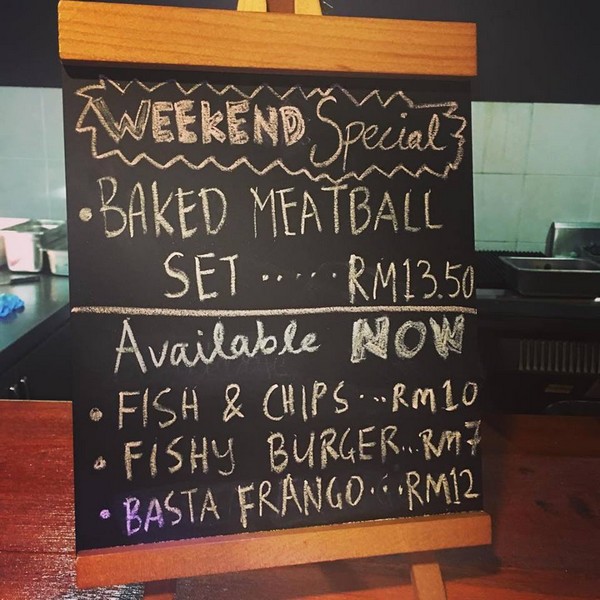 WEEKEND Special
• BAKED MEATBALL
SET ..... RM13.50
Available NOW
• FISH & CHIPS ... RM10
• FISHY BURGER... RM7
• BASTA FRANGO... RM12